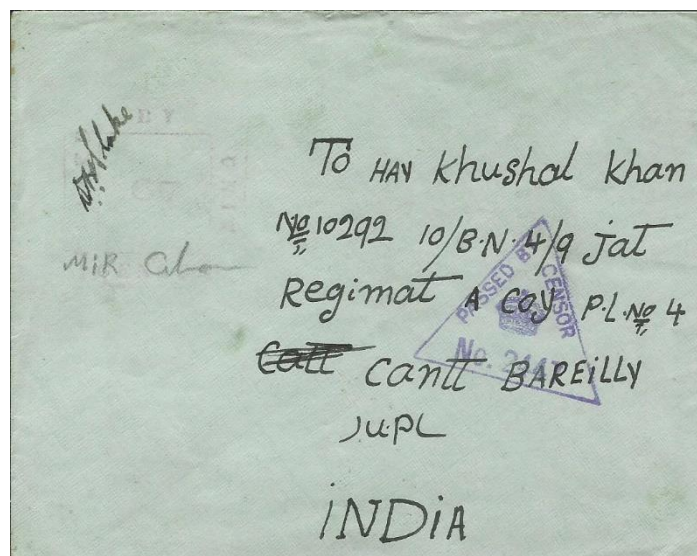 BY
To HAV Khushal Khan
No 10292 10/B.N. 4/9 jat
Regimat A Coy P.L. No 4
PASSED BY CENSOR
No.
Cantt BAREILLY
MIR
INDIA